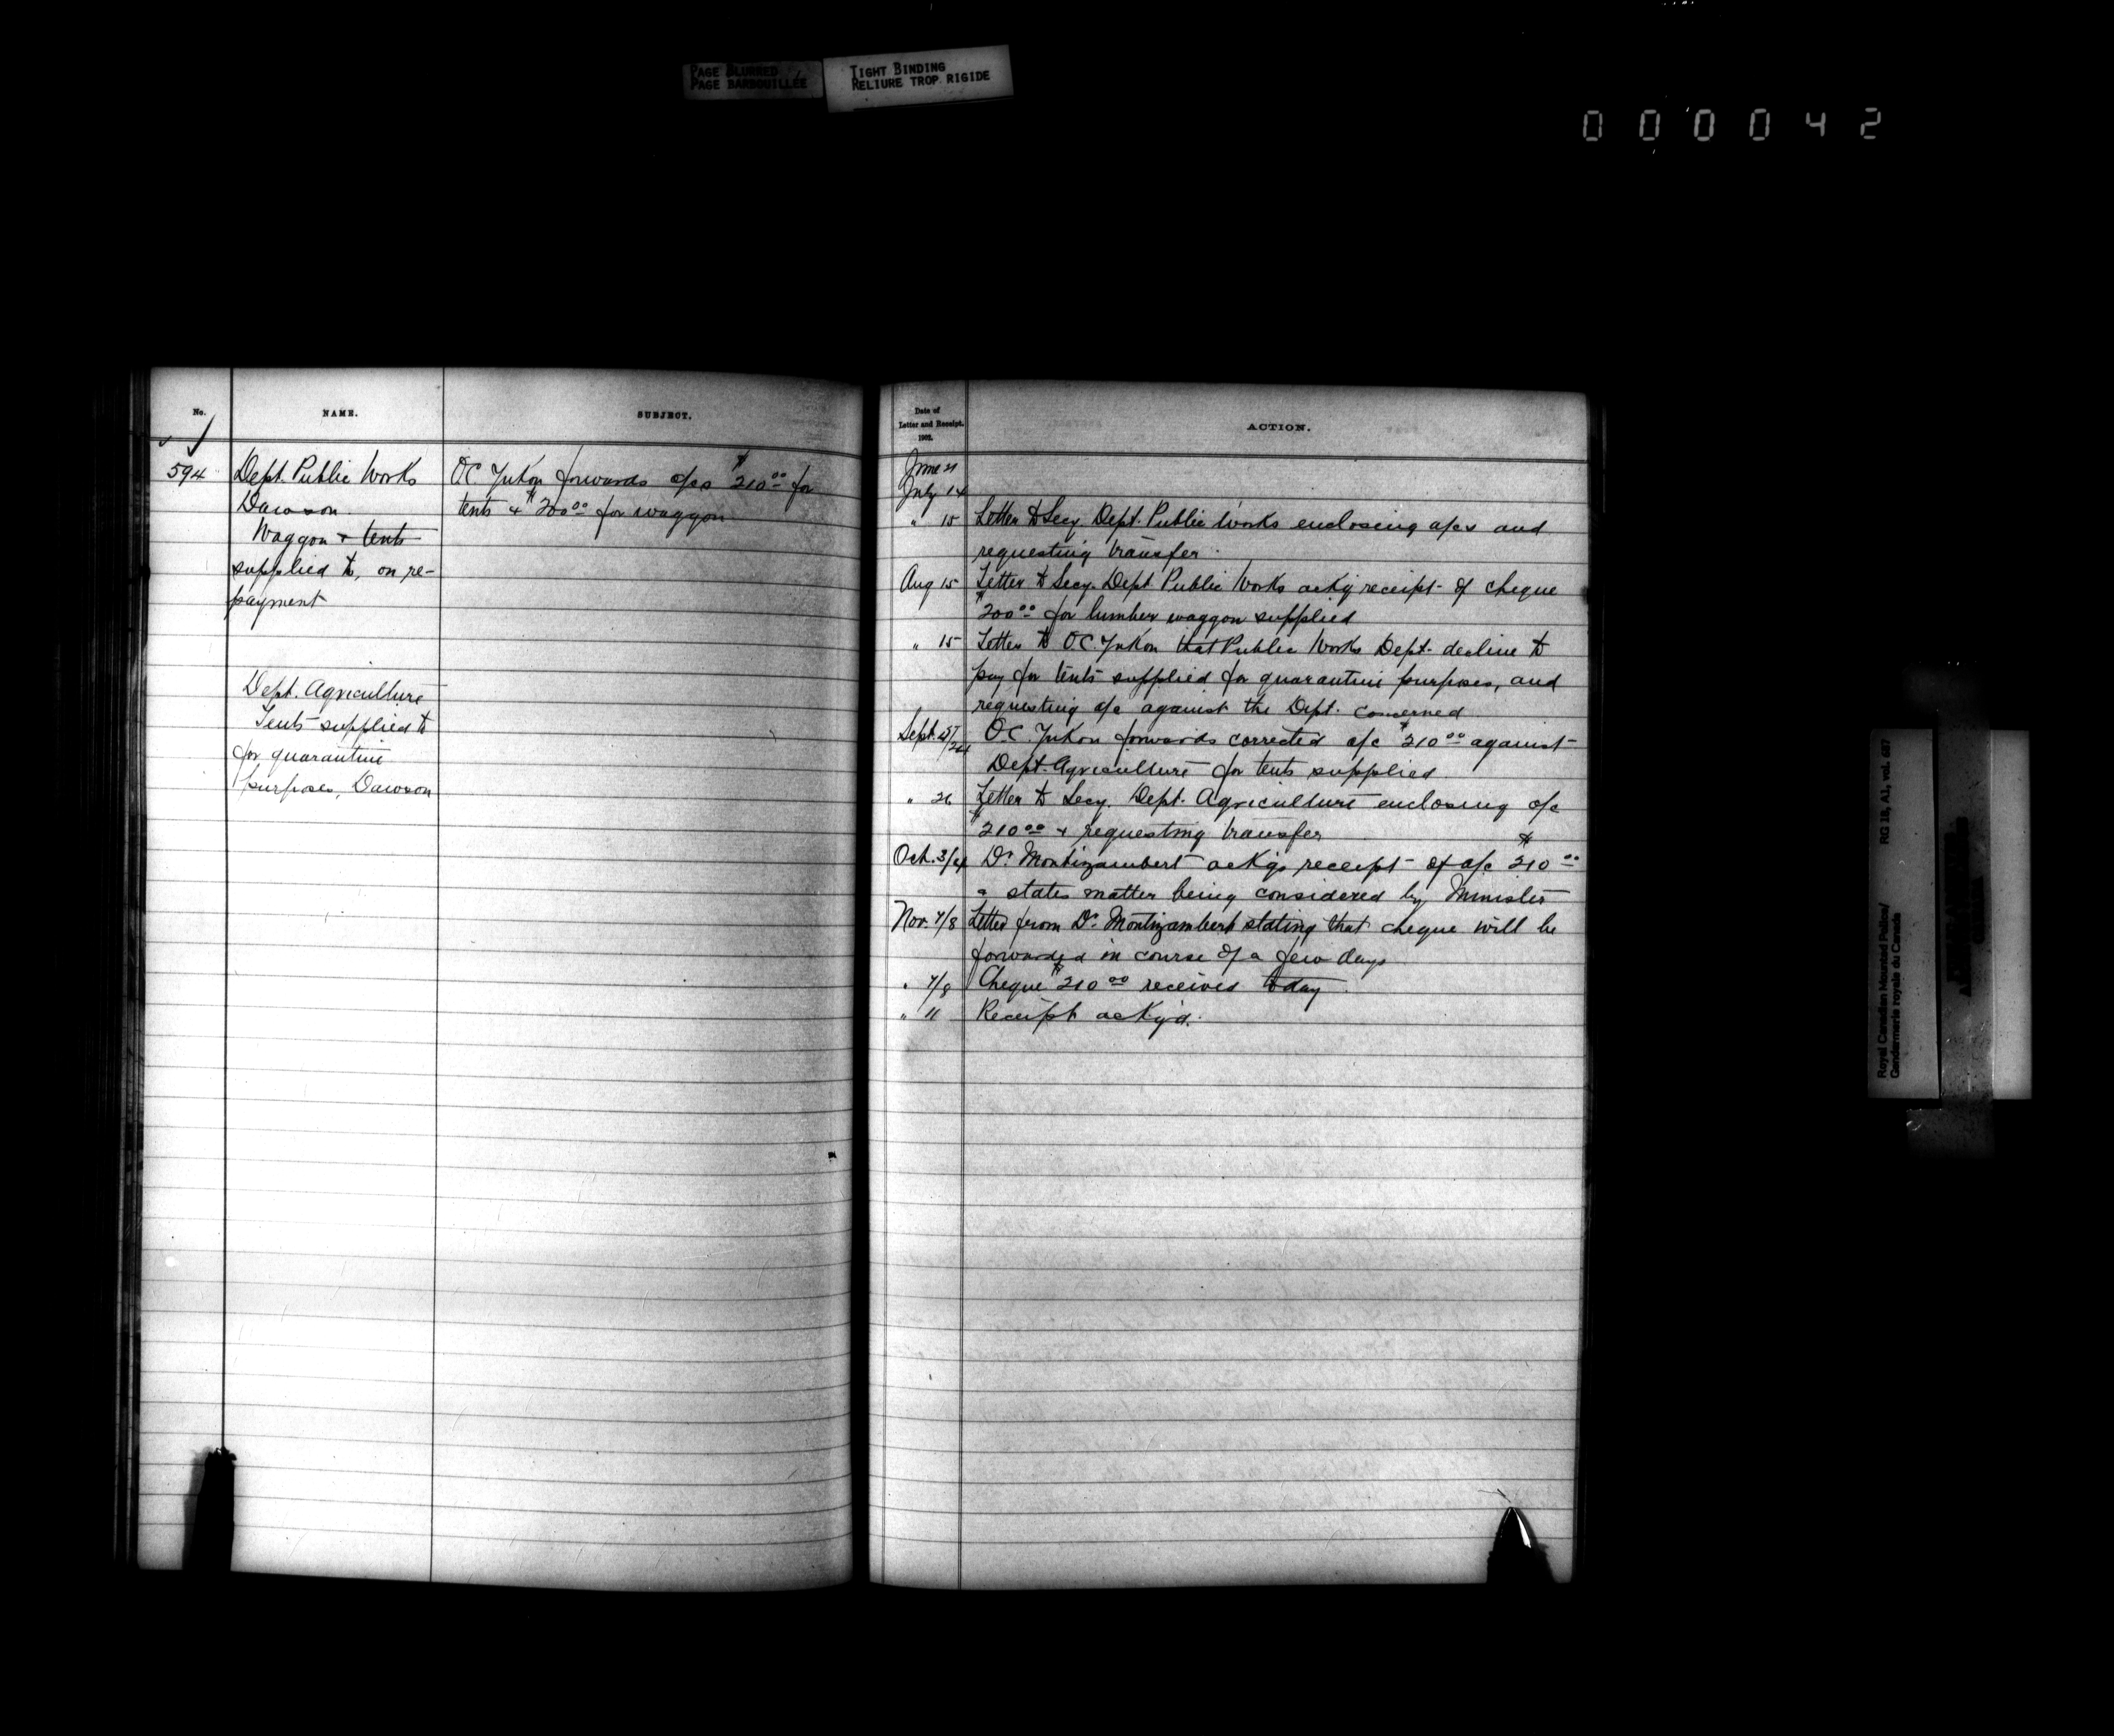 PAGE BLURRED
PAGE BARBOUILLÉE
TIGHT BINDING
RELIURE TROP RIGIDE
000042
No.
NAME.
SUBJECT.
594
Dept. Public Works
Dawson
Waggon & tents
supplied to, on re-
payment
Dept. Agriculture
Tents supplied to
for quarantine
purposes, Dawson
OC Yukon forwards a/cs $210.00 for
tents & $200.00 for waggon
Date of
Letter and Receipt.
1902.
ACTION.
June 21
July 14
" 15 Letter to Secy. Dept. Public Works enclosing a/cs and
requesting transfer.
Aug 15 Letter to Secy. Dept Public Works ackg receipt of cheque
$200.00 for lumber waggon supplied
" 15 Letter to OC. Yukon that Public Works Dept. decline to
pay for tents supplied for quarantine purposes, and
requesting a/c against the Dept. concerned
Sept. /24 O.C. Yukon forwards corrected a/c $210.00 against
Dept. Agriculture for tents supplied.
" 26 Letter to Secy. Dept. Agriculture enclosing a/c
$210.00 & requesting transfer
Oct. 3/4 Dr. Montizambert ackgs receipt of a/c $210.00
& states matter being considered by Minister
Nov. 7/8 Letter from Dr. Montizambert stating that cheque will be
forwarded in course of a few days
" 7/8 Cheque $210.00 received today.
" 11 Receipt ackg'd.
Royal Canadian Mounted Police/
Gendarmerie royale du Canada
RG 18, A1, vol. 687